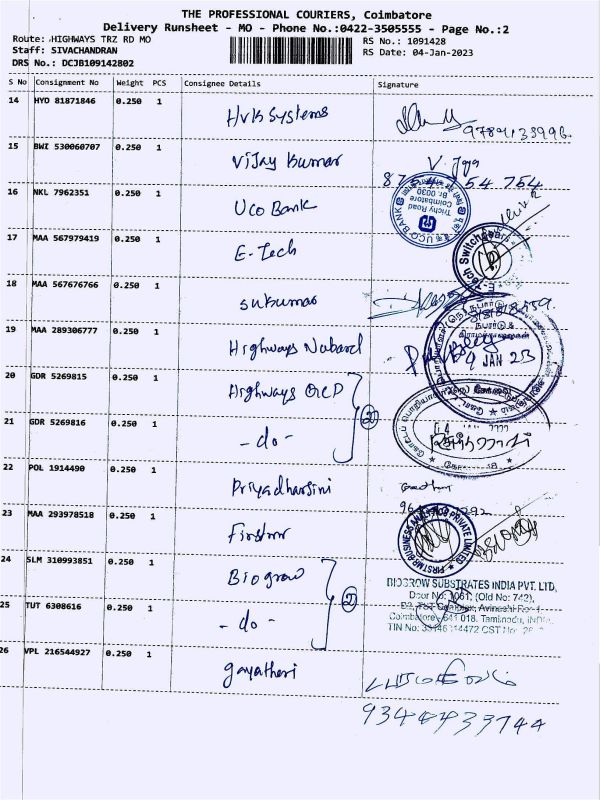 THE PROFESSIONAL COURIERS, Coimbatore
Delivery Runsheet - MO - Phone No.:0422-3505555 - Page No.:2
Route: HIGHWAYS TRZ RD MO
RS No.: 1091428
Staff: SIVACHANDRAN
RS Date: 04-Jan-2023
DRS No.: DCJB109142802
S No Consignment No Weight PCS Consignee Details Signature
14 HYD 81871846 0.250 1 HVB Systems
9789133996
15 BWI 530060707 0.250 1 Vijay Kumar
16 NKL 7962351 0.250 1 UCO Bank
UCO BANK
Trichy Road
Coimbatore
Br. 0030
17 MAA 567979419 0.250 1 E-Tech
18 MAA 567676766 0.250 1 Sukumar
19 MAA 289306777 0.250 1 Highways Nabard
JAN 23
20 GDR 5269815 0.250 1 Highways
21 GDR 5269816 0.250 1 -do-
22 POL 1914490 0.250 1 Priyadharsini
23 MAA 293978518 0.250 1 Firstar
FIRSTAR BUSINESS PRIVATE LIMITED
24 SLM 310993851 0.250 1 Biogrow
2
BIOGROW SUBSTRATES INDIA PVT. LTD,
Door No: 1061, (Old No: 742),
25 TUT 6308616 0.250 1 -do-
Coimbatore - 641 018. Tamilnadu, INDIA
26 VPL 216544927 0.250 1 gayathri